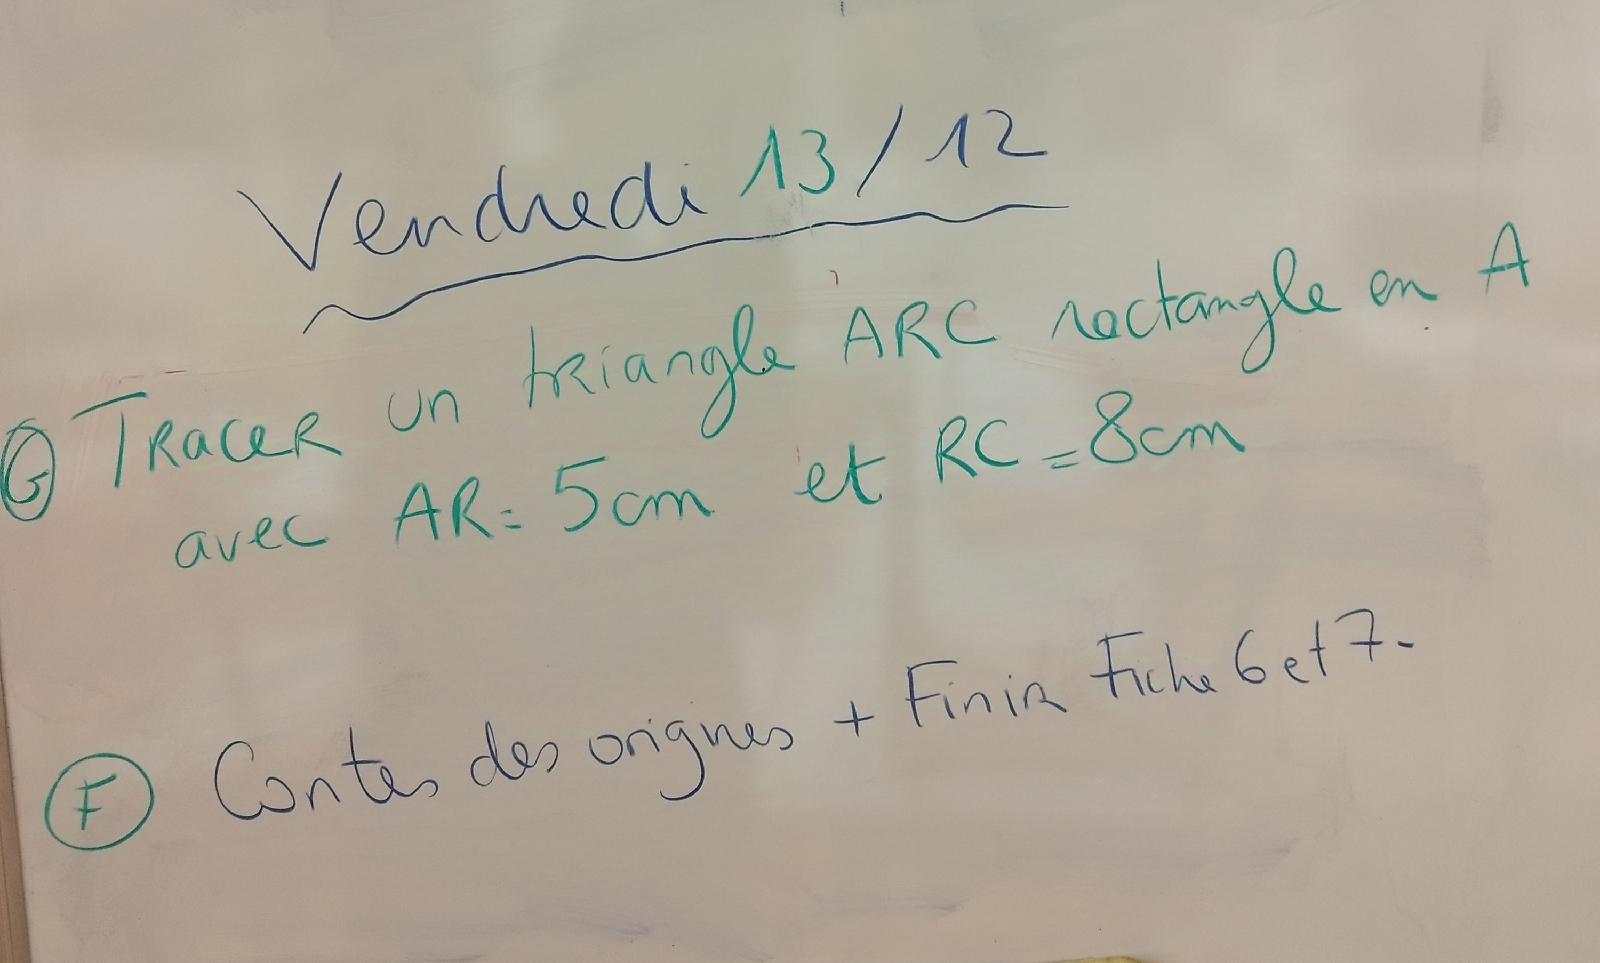 Vendredi 13/12
G Tracer un triangle ARC rectangle en A
avec AR = 5cm et RC = 8cm
F Contes des origines + Finir Fiche 6 et 7.